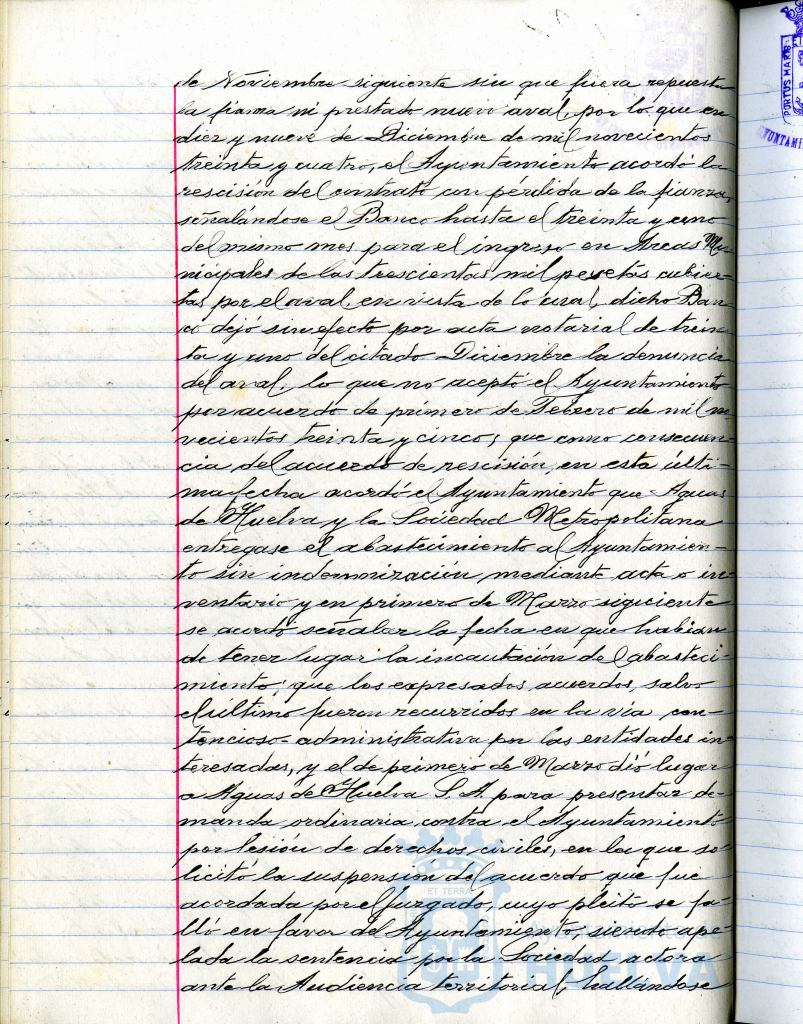 de Noviembre siguiente sin que fuera repuesta
la fianza ni prestado nuevo aval, por lo que en
diez y nueve de Diciembre de mil novecientos
treinta y cuatro, el Ayuntamiento acordó la
rescisión del contrato con pérdida de la fianza,
señalándose el Banco hasta el treinta y uno
del mismo mes para el ingreso en Arcas Mu-
nicipales de las trescientas mil pesetas cubier-
tas por el aval, en vista de lo cual, dicho Ban-
co dejó sin efecto por acta notarial de trein-
ta y uno del citado Diciembre la denuncia
del aval, lo que no aceptó el Ayuntamiento
por acuerdo de primero de Febrero de mil no
vecientos treinta y cinco; que como consecuen-
cia del acuerdo de rescisión, en esta últi-
ma fecha acordó el Ayuntamiento que Aguas
de Huelva y la Sociedad Metropolitana
entregase el abastecimiento al Ayuntamien-
to sin indemnización mediante acta o in-
ventario y en primero de Marzo siguiente
se acordó señalar la fecha en que habían
de tener lugar la incautación del abasteci-
miento; que los expresados acuerdos, salvo
el ultimo fueron recurridos en la vía con-
tencioso-administrativa por las entidades in-
teresadas, y el de primero de Marzo dió lugar
a Aguas de Huelva S. A. para presentar de-
manda ordinaria contra el Ayuntamiento
por lesión de derechos civiles, en la que so-
licitó la suspensión del acuerdo que fue
acordada por el Juzgado, cuyo pleito se fa-
lló en favor del Ayuntamiento, siendo ape-
lada la sentencia por la Sociedad actora
ante la Audiencia territorial, hallándose
PORTUS MARIS
ET TERRA
HUELVA